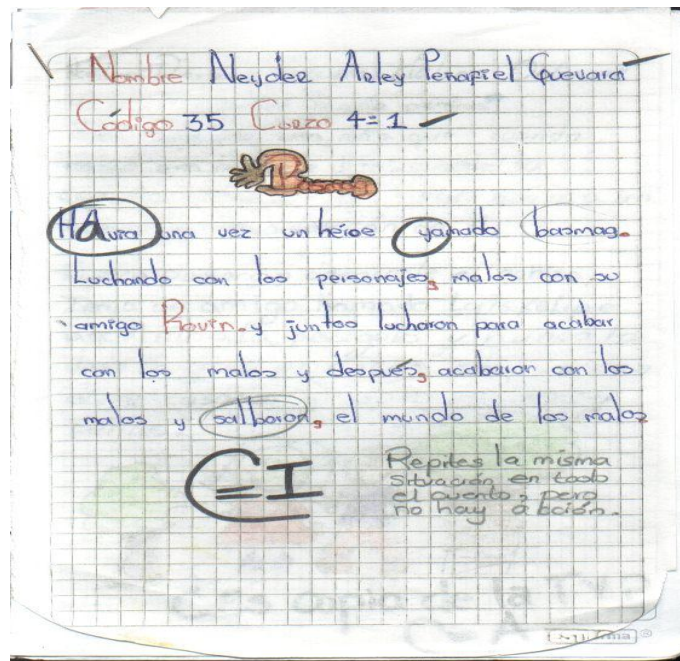 Nombre Neyder Arley Peñafiel Guevara
Código 35 Curzo 4=1
HAvia una vez un héroe yamado basmag.
Luchando con los personajes, malos con su
amigo Rovin. y juntos lucharon para acabar
con los malos y después, acabaron con los
malos y salbaron, el mundo de los malos
C=I
Repites la misma
situación en todo
el cuento, pero
no hay acción.